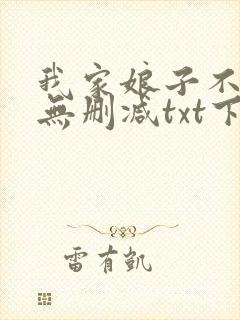 我家娘子不
無删减txt下
雷有凯